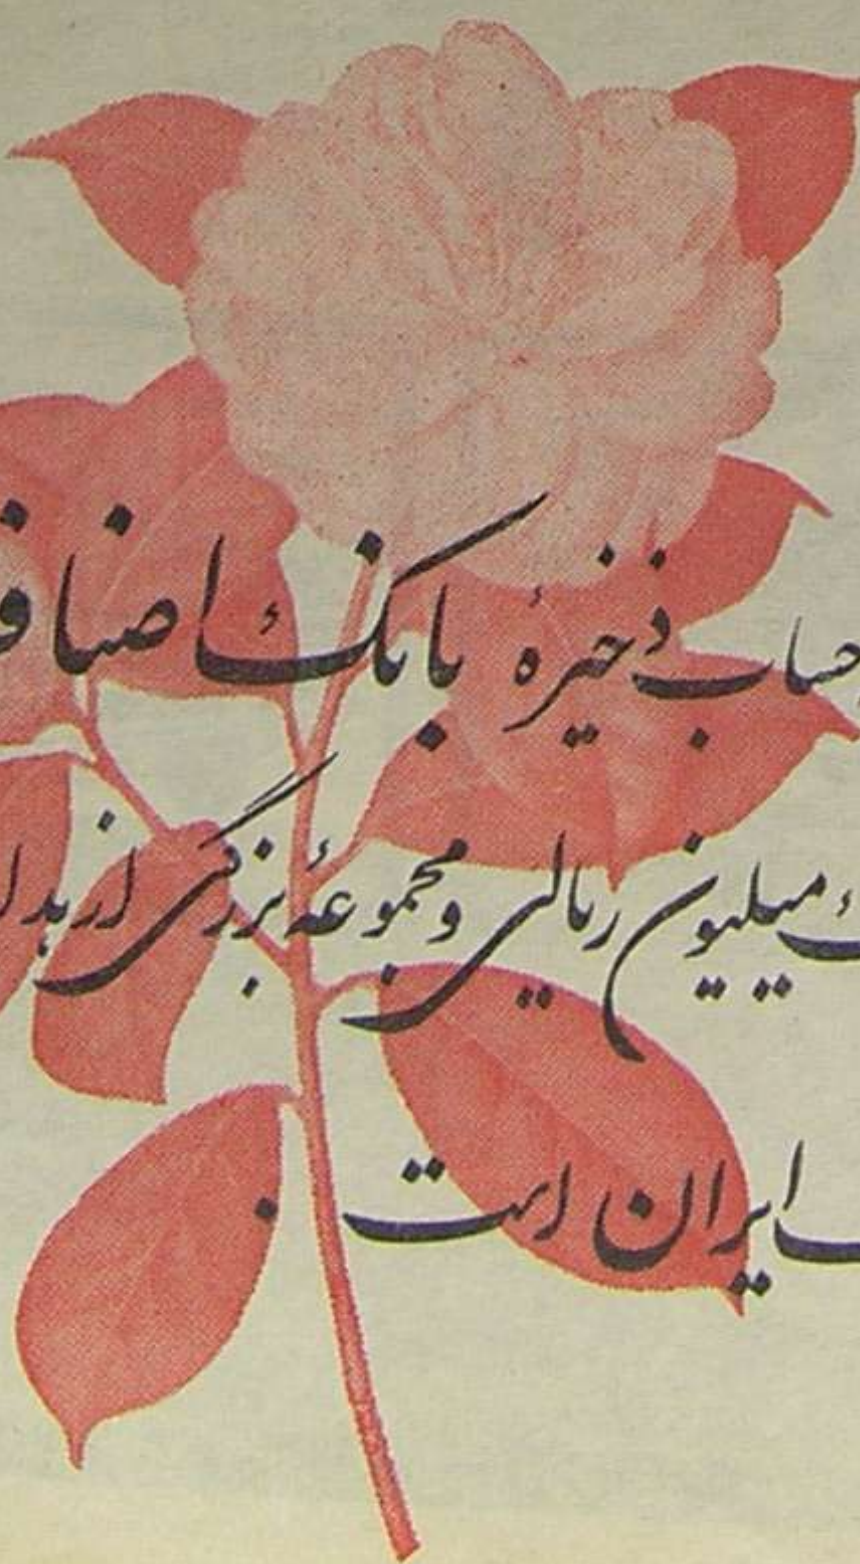 حساب ذخیرهٔ بانک اصناف
میلیون ریالی و مجموعهٔ بزرگی از
ایران است .